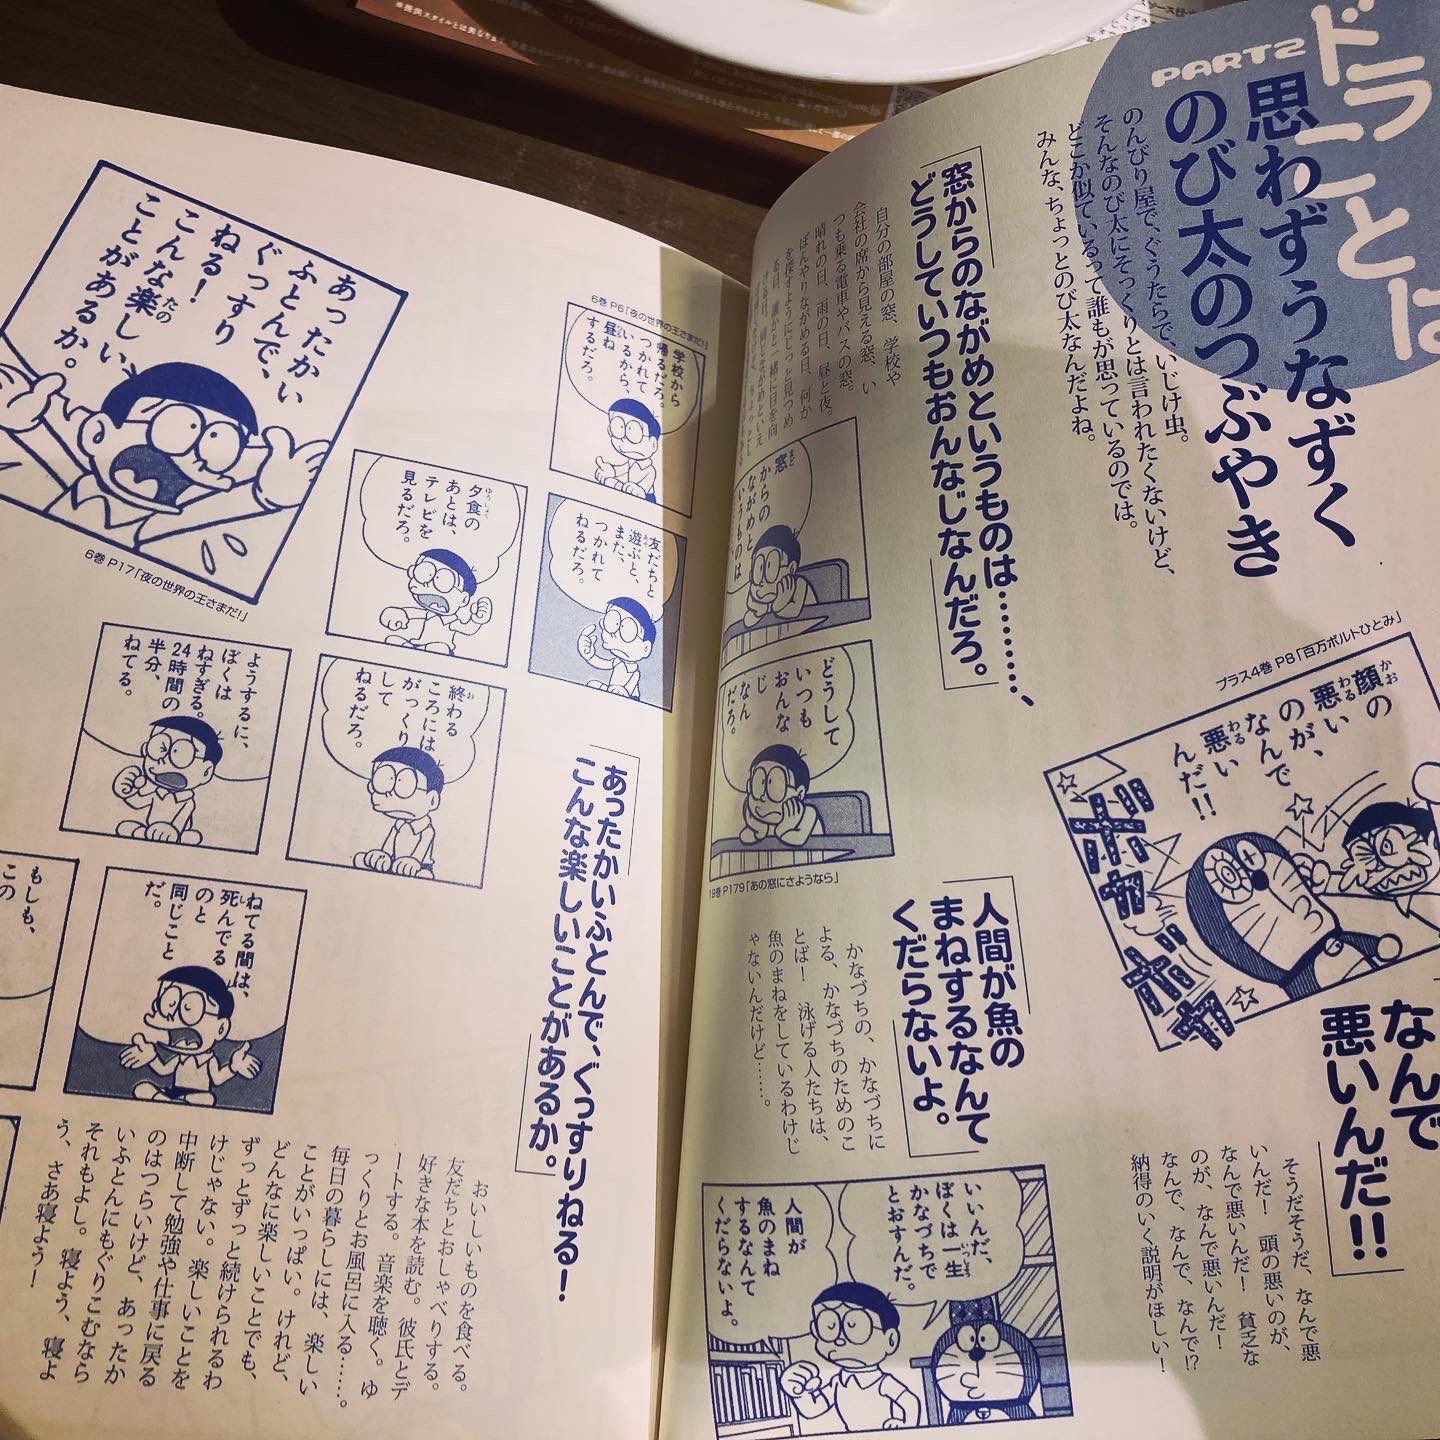 ドラことば
PART2
思わずうなずく
のび太のつぶやき
のんびり屋で、ぐうたらで、いじけ虫。
そんなのび太にそっくりとは言われたくないけど、
どこか似ているって誰もが思っているのでは。
みんな、ちょっとのび太なんだよね。
プラス4巻 P8「百万ボルトひとみ」
顔の
悪い
のが、
なんで
悪い
んだ!!
ボカ
ボカ
なんで
悪いんだ!!
そうだそうだ、なんで悪
いんだ! 頭の悪いのが、
なんで悪いんだ! 貧乏な
のが、なんで悪いんだ!
なんで、なんで、なんで!?
納得のいく説明がほしい!
窓からのながめというものは………、
どうしていつもおんなじなんだろ。
自分の部屋の窓、学校や
会社の席から見える窓、い
つも乗る電車やバスの窓。
晴れの日、雨の日、昼と夜。
ぼんやりながめる日、何か
を探すようにじっと見つめ
る日、誰かと一緒に目を向
窓
からの
ながめと
いうものは
どうして
いつも
おんな
じ
なん
だろ。
19巻 P179「あの窓にさようなら」
人間が魚の
まねするなんて
くだらないよ。
かなづちの、かなづちに
よる、かなづちのためのこ
とば! 泳げる人たちは、
魚のまねをしているわけじ
ゃないんだけど……。
いいんだ、
ぼくは一生
かなづちで
とおすんだ。
人間が
魚のまね
するなんて
くだらないよ。
6巻 P6「夜の世界の王さまだ!」
学校から
帰るだろ。
つかれて
いるから、
昼ね
するだろ。
友だちと
遊ぶと、
また、
つかれて
ねるだろ。
夕食の
あとは、
テレビを
見るだろ。
終わる
ころには
がっくり
して
ねるだろ。
ようするに、
ぼくは
ねすぎる。
24時間の
半分、
ねてる。
ねてる間は、
死んでる
のと
同じこと
だ。
もしも、
この
あったかい
ふとんで、
ぐっすり
ねる!
こんな楽しい
ことがあるか。
6巻 P17「夜の世界の王さまだ!」
あったかいふとんで、ぐっすりねる!
こんな楽しいことがあるか。
おいしいものを食べる。
友だちとおしゃべりする。
好きな本を読む。彼氏とデ
ートする。音楽を聴く。ゆ
っくりとお風呂に入る……。
毎日の暮らしには、楽しい
ことがいっぱい。けれど、
どんなに楽しいことでも、
ずっとずっと続けられるわ
けじゃない。楽しいことを
中断して勉強や仕事に戻る
のはつらいけど、あったか
いふとんにもぐりこむなら
それもよし。寝よう、寝よ
う、さあ寝よう!